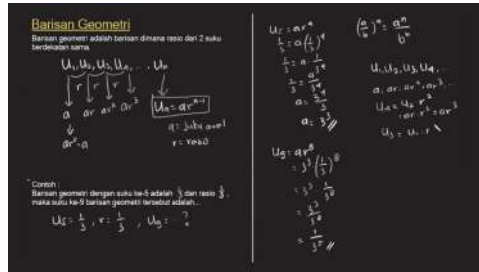 Barisan Geometri
Barisan geometri adalah barisan dimana rasio dari 2 suku
berdekatan sama.
U₁, U₂, U₃, U₄, ... Uₙ
r r r
a ar ar² ar³ Uₙ = arⁿ⁻¹
ar⁰ = a
r = rasio
Contoh :
Barisan geometri dengan suku ke-5 adalah 1/3 dan rasio 1/3,
maka suku ke-9 barisan geometri tersebut adalah...
U₅ = 1/3 , r = 1/3 , U₉ = ... ?
U₅ = ar⁴
1/3 = a (1/3)⁴
1/3 = a · 1/3⁴
a = 3³
U₉ = ar⁸
= 3³ (1/3)⁸
= 3³ 1/3⁸
= 3³/3⁸
= 1/3⁵
(a/b)ⁿ = aⁿ/bⁿ
U₁, U₂, U₃, U₄, ..
a, ar, ar², ar³, ..